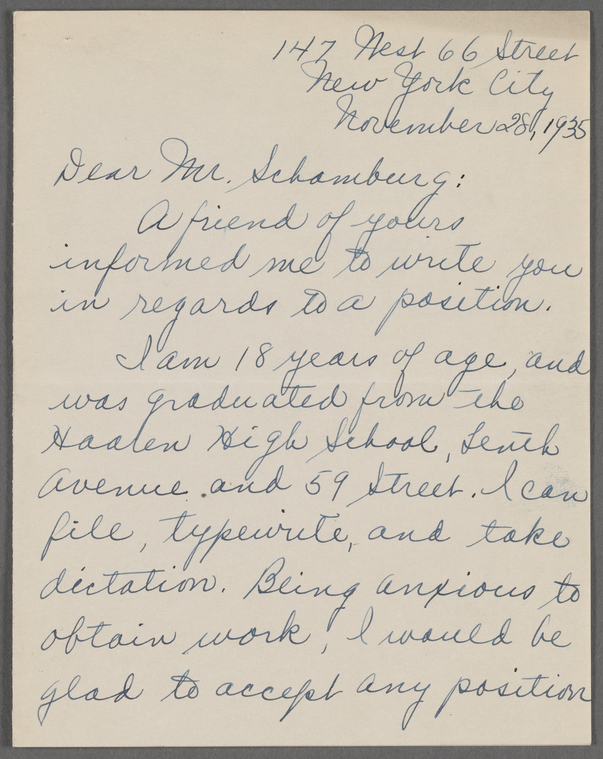 147 West 66 Street
New York City
November 28, 1935
Dear Mr. Schomburg:
A friend of yours
informed me to write you
in regards to a position.
I am 18 years of age, and
was graduated from the
Haaren High School, Tenth
Avenue and 59 Street. I can
file, typewrite, and take
dictation. Being anxious to
obtain work, I would be
glad to accept any position